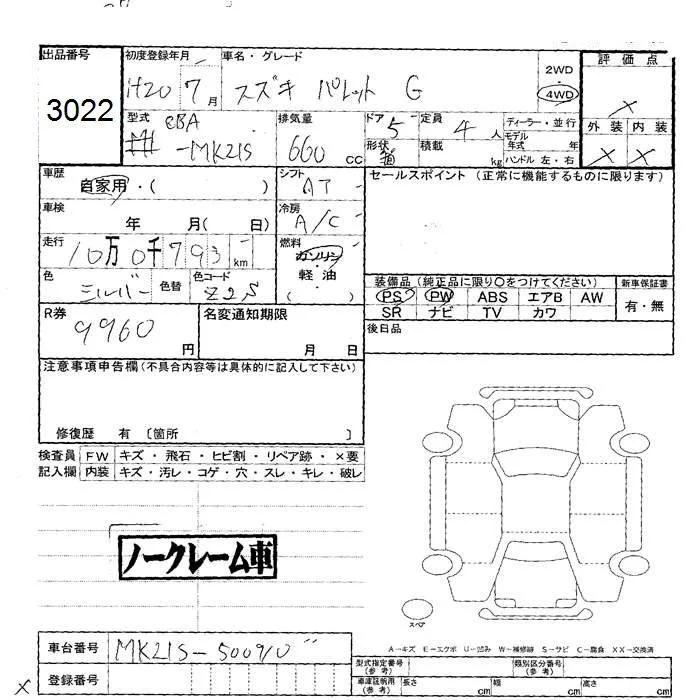 出品番号 初度登録年月 車名・グレード 評価点
3022 H20 7月 スズキ パレット G 2WD 4WD ×
型式 CBA -MK21S 排気量 660 CC ドア 5 定員 4人 ディーラー・並行 外装 内装
形状 箱 積載 kg モデル年式 年 ハンドル 左・右 × ×
車歴 自家用・( ) シフト AT セールスポイント (正常に機能するものに限ります)
車検 年 月( 日) 冷房 A/C
走行 10万0千793km 燃料 ガソリン・軽油 ( )
色 シルバー 色替 色コード Z2S
装備品 (純正品に限り○をつけてください) 新車保証書
PS PW ABS エアB AW 有・無
SR ナビ TV カワ
R券 9960円 名変通知期限 月 日 後日品
注意事項申告欄(不具合内容等は具体的に記入して下さい)
修復歴 有 〔箇所 〕
検査員 FW キズ・飛石・ヒビ割・リペア跡・×要
記入欄 内装 キズ・汚レ・コゲ・穴・スレ・キレ・破レ
ノークレーム車
スペア
A-キズ E-エクボ U-凹み W-補修跡 S-サビ C-腐食 XX-交換済
車台番号 MK21S-500910
登録番号
型式指定番号(参考) 類別区分番号(参考)
車庫証明用(参考) 長さ cm 幅 cm 高さ cm
×